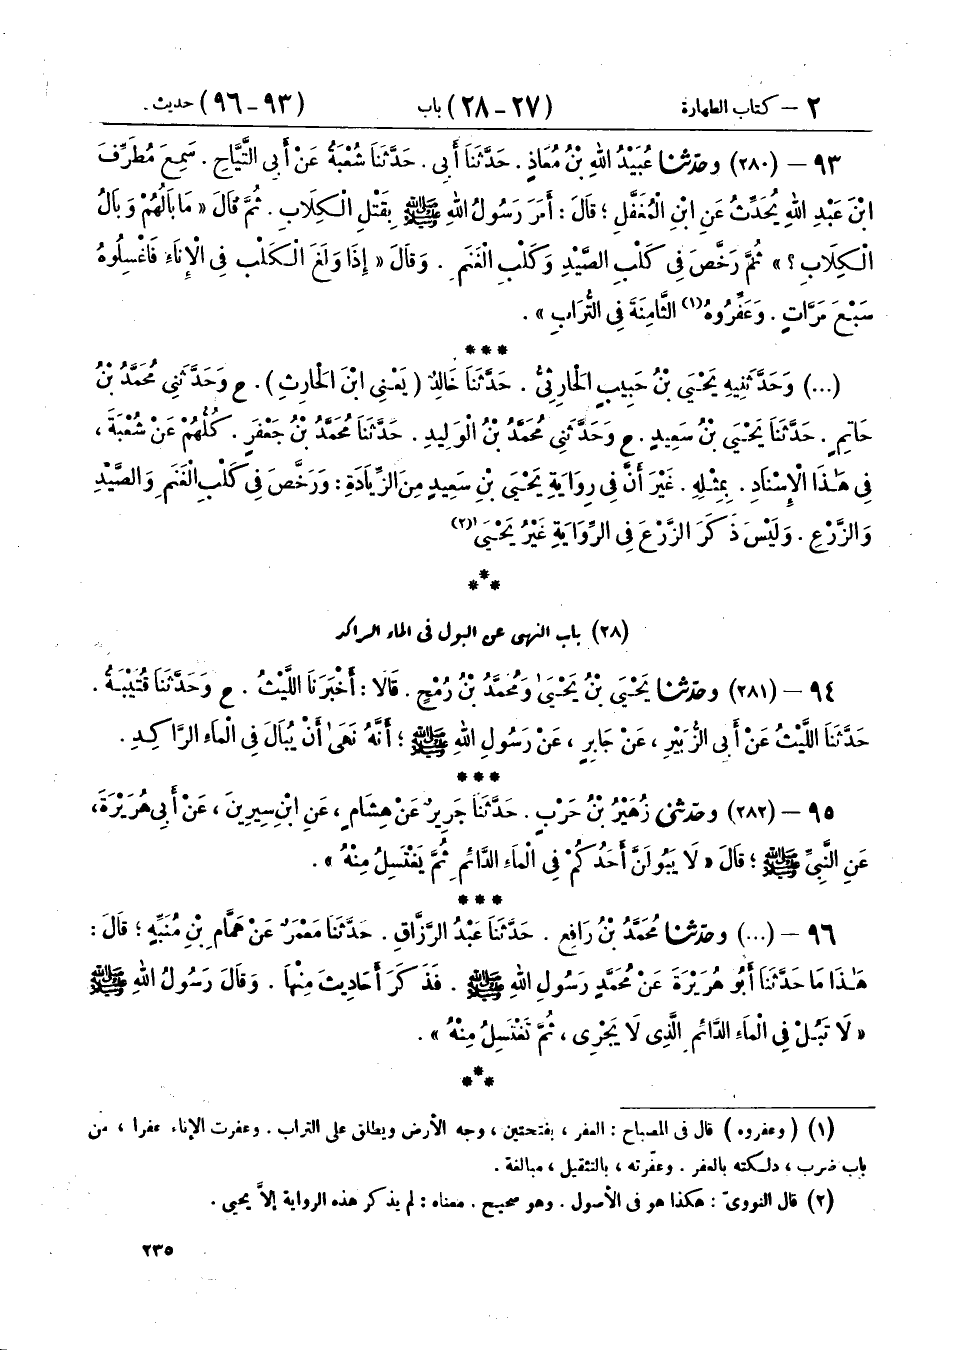 ٢ — كتاب الطهارة (٢٧ - ٢٨) باب (٩٣ - ٩٦) حديث .
٩٣ — (٢٨٠) وحَدَّثَنَا عُبَيْدُ اللهِ بْنُ مُعَاذٍ . حَدَّثَنَا أَبِي . حَدَّثَنَا شُعْبَةُ عَنْ أَبِي التَّيَّاحِ . سَمِعَ مُطَرِّفَ
ابْنَ عَبْدِ اللهِ يُحَدِّثُ عَنِ ابْنِ الْمُغَفَّلِ ؛ قَالَ : أَمَرَ رَسُولُ اللهِ ﷺ بِقَتْلِ الْكِلَابِ . ثُمَّ قَالَ « مَا بَالُهُمْ وَبَالُ
الْكِلَابِ ؟ » ثُمَّ رَخَّصَ فِي كَلْبِ الصَّيْدِ وَكَلْبِ الْغَنَمِ . وَقَالَ « إِذَا وَلَغَ الْكَلْبُ فِي الْإِنَاءِ فَاغْسِلُوهُ
سَبْعَ مَرَّاتٍ . وَعَفِّرُوهُ(١) الثَّامِنَةَ فِي التُّرَابِ » .
***
(...) وَحَدَّثَنِيهِ يَحْيَى بْنُ حَبِيبٍ الْحَارِثِيُّ . حَدَّثَنَا خَالِدٌ ( يَعْنِي ابْنَ الْحَارِثِ ) . ح وَحَدَّثَنِي مُحَمَّدُ بْنُ
حَاتِمٍ . حَدَّثَنَا يَحْيَى بْنُ سَعِيدٍ . ح وَحَدَّثَنِي مُحَمَّدُ بْنُ الْوَلِيدِ . حَدَّثَنَا مُحَمَّدُ بْنُ جَعْفَرٍ . كُلُّهُمْ عَنْ شُعْبَةَ ،
فِي هَٰذَا الْإِسْنَادِ . بِمِثْلِهِ . غَيْرَ أَنَّ فِي رِوَايَةِ يَحْيَى بْنِ سَعِيدٍ مِنَ الزِّيَادَةِ : وَرَخَّصَ فِي كَلْبِ الْغَنَمِ وَالصَّيْدِ
وَالزَّرْعِ . وَلَيْسَ ذَكَرَ الزَّرْعَ فِي الرِّوَايَةِ غَيْرُ يَحْيَى(٢)
***
(٢٨) باب النهى عن البول فى الماء الراكد
٩٤ — (٢٨١) وحَدَّثَنَا يَحْيَى بْنُ يَحْيَىٰ وَمُحَمَّدُ بْنُ رُمْحٍ . قَالَا : أَخْبَرَنَا اللَّيْثُ . ح وَحَدَّثَنَا قُتَيْبَةُ .
حَدَّثَنَا اللَّيْثُ عَنْ أَبِي الزُّبَيْرِ ، عَنْ جَابِرٍ ، عَنْ رَسُولِ اللهِ ﷺ ؛ أَنَّهُ نَهَىٰ أَنْ يُبَالَ فِي الْمَاءِ الرَّاكِدِ .
***
٩٥ — (٢٨٢) وحَدَّثَنِي زُهَيْرُ بْنُ حَرْبٍ . حَدَّثَنَا جَرِيرٌ عَنْ هِشَامٍ ، عَنِ ابْنِ سِيرِينَ ، عَنْ أَبِي هُرَيْرَةَ ،
عَنِ النَّبِيِّ ﷺ ؛ قَالَ « لَا يَبُولَنَّ أَحَدُكُمْ فِي الْمَاءِ الدَّائِمِ ثُمَّ يَغْتَسِلُ مِنْهُ » .
***
٩٦ — (...) وحَدَّثَنَا مُحَمَّدُ بْنُ رَافِعٍ . حَدَّثَنَا عَبْدُ الرَّزَّاقِ . حَدَّثَنَا مَعْمَرٌ عَنْ هَمَّامِ بْنِ مُنَبِّهٍ ؛ قَالَ :
هَٰذَا مَا حَدَّثَنَا أَبُو هُرَيْرَةَ عَنْ مُحَمَّدٍ رَسُولِ اللهِ ﷺ . فَذَكَرَ أَحَادِيثَ مِنْهَا . وَقَالَ رَسُولُ اللهِ ﷺ
« لَا تَبُلْ فِي الْمَاءِ الدَّائِمِ الَّذِي لَا يَجْرِي ، ثُمَّ تَغْتَسِلُ مِنْهُ » .
***
(١) ( وعفروه ) قال فى المصباح : العفر ، بفتحتين ، وجه الأرض ويطلق على التراب . وعفرت الإناء عفرا ، من
باب ضرب ، دلكته بالعفر . وعفّرته ، بالتثقيل ، مبالغة .
(٢) قال النووىّ : هكذا هو فى الأصول . وهو صحيح . معناه : لم يذكر هذه الرواية إلاَّ يحيى .
٢٣٥